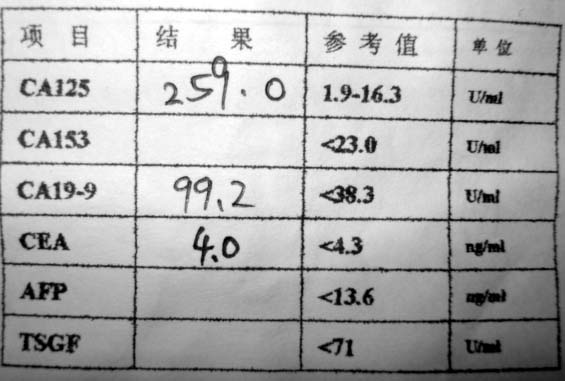 项 目 结 果 参 考 值 单 位
CA125 259.0 1.9-16.3 U/ml
CA153 <23.0 U/ml
CA19-9 99.2 <38.3 U/ml
CEA 4.0 <4.3 ng/ml
AFP <13.6 ng/ml
TSGF <71 U/ml